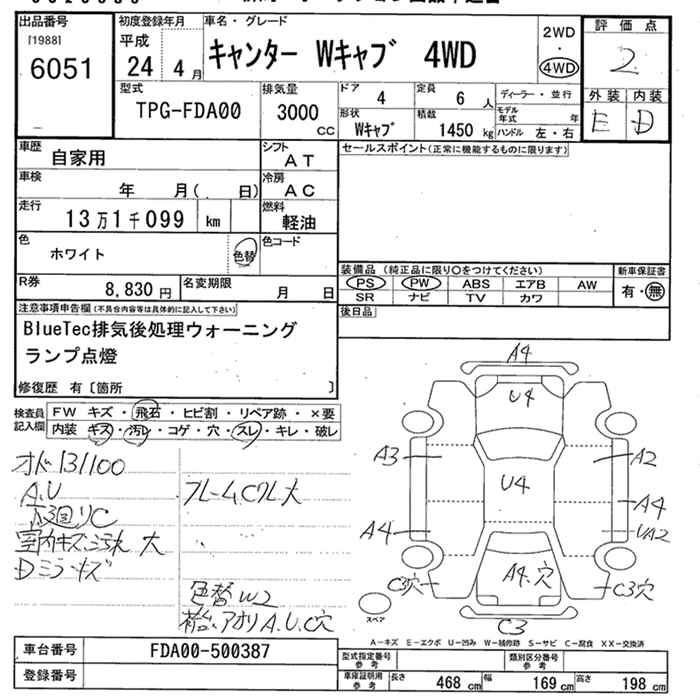 出品番号
[1988]
6051
初度登録年月
平成
24 4 月
車名・グレード
キャンター Wキャブ 4WD
2WD
・
4WD
評価点
2
外装 内装
E D
型式
TPG-FDA00
排気量
3000 cc
ドア
4
定員
6 人
ディーラー・並行
形状
Wキャブ
積載
1450 kg
モデル年式 年
ハンドル 左・右
車歴
自家用
シフト
AT
セールスポイント(正常に機能するものに限ります)
車検
年 月( 日)
冷房
AC
走行
13万1千099 km
燃料
軽油
色
ホワイト
色替
色コード
装備品 (純正品に限り〇をつけてください)
PS PW ABS エアB AW
SR ナビ TV カワ
新車保証書
有・無
R券
8,830 円
名変期限
月 日
後日品
注意事項申告欄(不具合内容等は具体的に記入して下さい)
BlueTec排気後処理ウォーニング
ランプ点燈
修復歴 有〔箇所 〕
検査員
記入欄
FW キズ・飛石・ヒビ割・リペア跡・×要
内装・キズ・汚レ・コゲ・穴・スレ・キレ・破レ
オド131100
A.U
下廻りC
室内キズ汚れ 大
Dミラーキズ
フレームCクレ大
色替W2
荷台アオリA.U.C穴
A4
U4
A3
A2
U4
A4
A4
UA2
A4.穴
C3穴
C3穴
C3
スペア
A-キズ E-エクボ U-凹み W-補修跡 S-サビ C-腐食 XX-交換済
車台番号
FDA00-500387
登録番号
型式指定番号
参考
類別区分番号
参考
車庫証明用
参考
長さ 468 cm 幅 169 cm 高さ 198 cm